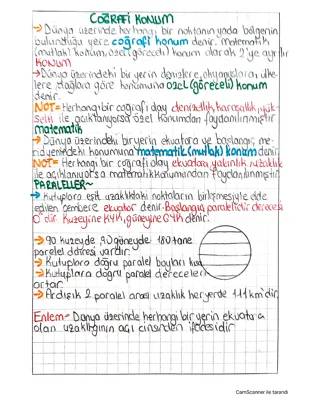 COĞRAFİ KONUM
→ Dünya üzerinde herhangi bir noktanın yada bölgenin
bulunduğu yere coğrafi konum denir. Matematik
(mutlak) konum, özel (göreceli) konum olarak 2'ye ayrılır
KONUM
→ Dünya üzerindeki bir yerin denizlere, okyanuslara, ülke-
lere, dağlara göre konumuna özel (göreceli) konum
denir.
NOT= Herhangi bir coğrafi olay denizellik, karasallık, yük-
selti ile açıklanıyorsa özel konumdan faydanılınmıştır
matematik
→ Dünya üzerindeki bir yerin ekvatora ve başlangıç me-
ridyenindeki konumuna matematik (mutlak) konum denir.
NOT= Herhangi bir coğrafi olay ekvatora yakınlık uzaklık
ile açıklanıyorsa matematik konumundan faydanılınmıştır.
PARALELLER~
→ Kutuplara eşit uzaklıktaki noktaların birleşmesiyle elde
edilen çembere ekvator denir. Başlangıç paralelidir derecesi
0°dir. Kuzeyine KYK, güneyine GYK denir.
→ 90 kuzeyde 90 güneyde 180 tane
paralel dairesi vardır.
→ Kutuplara doğru paralel boyları
→ Kutuplara doğru paralel dereceleri
artar.
→ Ardışık 2 paralel arası uzaklık her yerde 111 km'dir.
Enlem- Dünya üzerinde herhangi bir yerin ekvatora
olan uzaklığının açı cinsinden ifadesidir
CamScanner ile tarandı